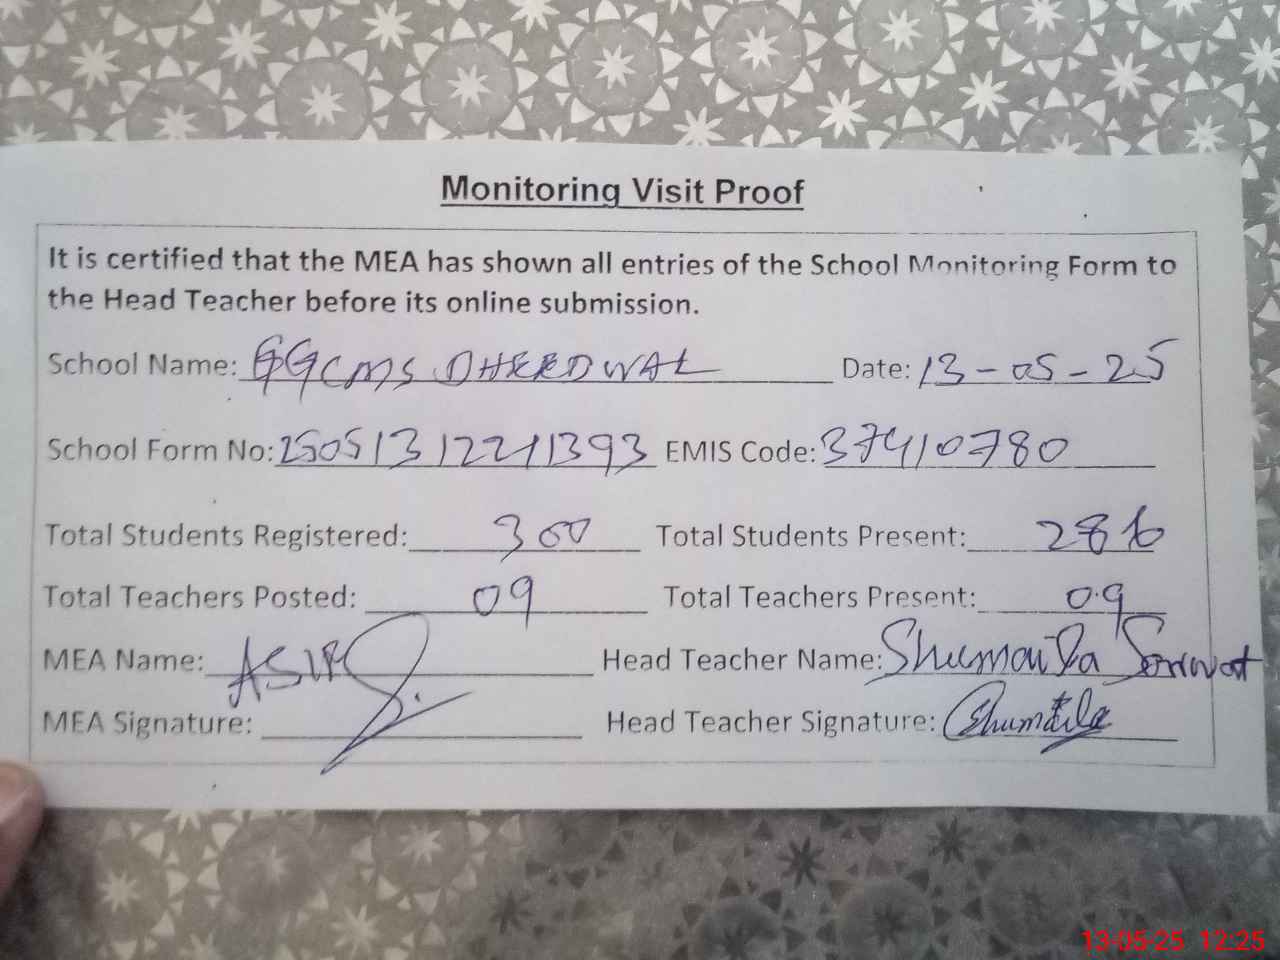 Monitoring Visit Proof
It is certified that the MEA has shown all entries of the School Monitoring Form to
the Head Teacher before its online submission.
School Name: GGCMS DHEEDWAL Date: 13-05-25
School Form No: 25051312211393 EMIS Code: 37410780
Total Students Registered: 300 Total Students Present: 286
Total Teachers Posted: 09 Total Teachers Present: 09
MEA Name: ASIF Head Teacher Name: Shumaila
MEA Signature: Head Teacher Signature: Shumaila
13-05-25 12:25